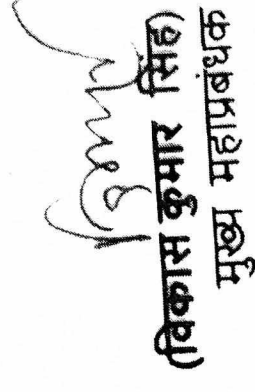 (विकास कुमार सिंह)
मुख्य महाप्रबंधक